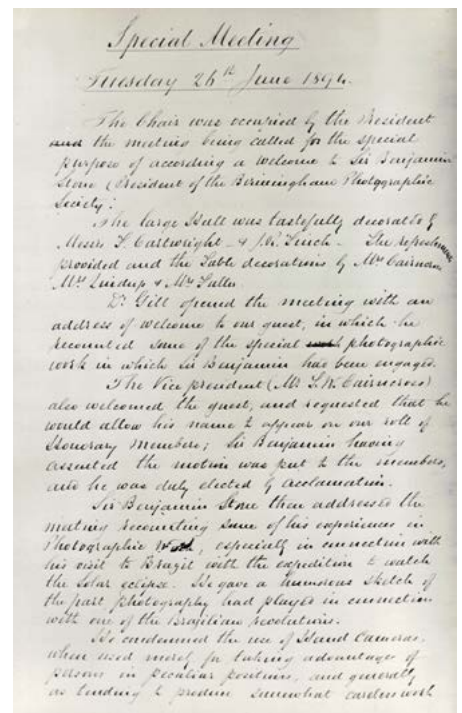 Special Meeting
Tuesday 26th June 1894.
The Chair was occupied by the President
and the meeting being called for the special
purpose of according a welcome to Sir Benjamin
Stone (President of the Birmingham Photographic
Society.
The large Hall was tastefully decorated by
Messrs T. Cartwright & J. Finch. The refreshments
provided and the Table decorations by Mrs Cairncross
Mrs Lindup & Mrs
Dr Gill opened the meeting with an
address of welcome to our guest, in which he
recounted some of the special photographic
work in which Sir Benjamin had been engaged.
The Vice president (Mr T. W. Cairncross)
also welcomed the guest, and requested that he
would allow his name to appear on our roll of
Honorary Members; Sir Benjamin having
assented the motion was put to the members,
and he was duly elected by acclamation.
Sir Benjamin Stone then addressed the
meeting recounting some of his experiences in
Photographic Work, especially in connection with
his visit to Brazil with the expedition to watch
the Solar eclipse. He gave a humorous sketch of
the part photography had played in connection
with one of the Brazilian revolutions.
He condemned the use of Hand Cameras,
when used merely for taking advantages of
persons in peculiar positions, and generally
as tending to produce somewhat careless work